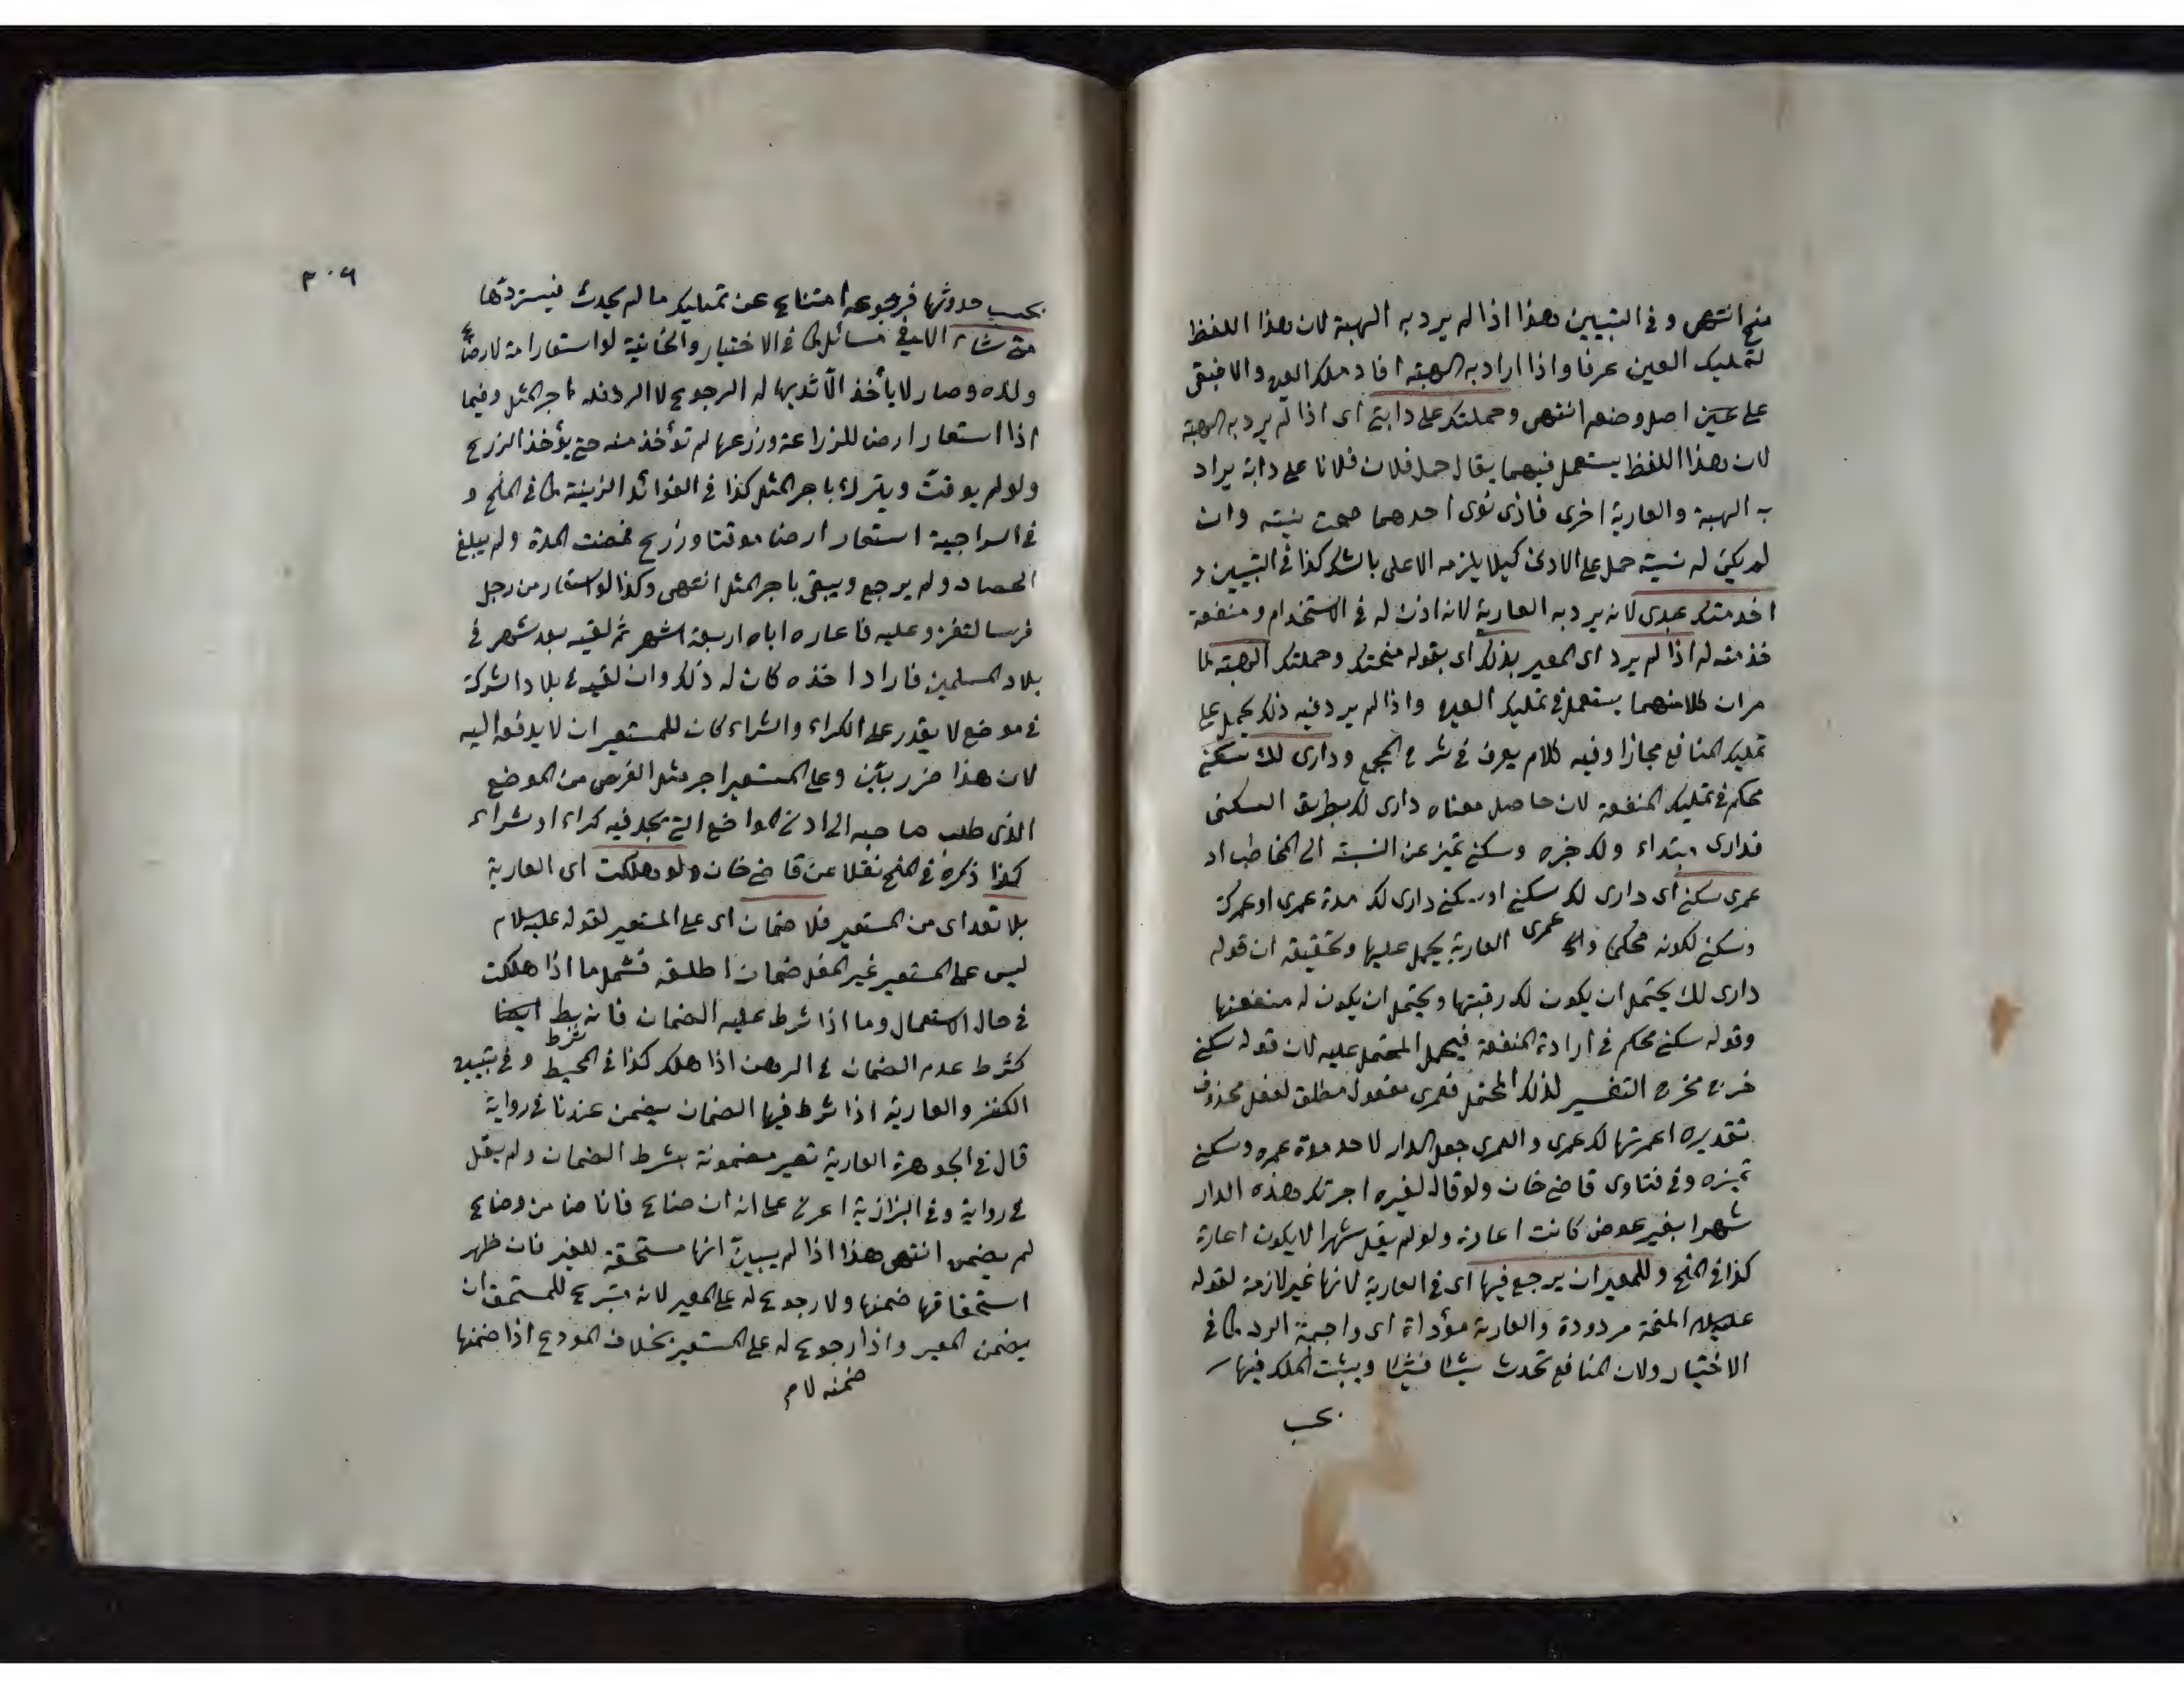 منح انتهى وفي التبيين هذا اذا لم يرد به الهبة لان هذا اللفظ
لتمليك العين عرفا واذا اراد به الهبة افاد ملك العين والا فيبقى
على اصل وضعه انتهى وحملتك على دابتي اى اذا لم يرد به الهبة
لان هذا اللفظ يستعمل فيهما يقال حمل فلان فلانا على دابة يراد
به الهبة والعارية اخرى فاذى نوى احدهما صحت نيته وان
لم يكن له نية حمل على الادنى كيلا يلزمه الاعلى بالشك كذا في التبيين و
اخدمتك عبدى لانه يرد به العارية لانه اذن له في الاستخدام ومنفعة
خدمته له اذا لم يرد اى المعير بذلك اى بقوله منحتك وحملتك الهبة لما
مر ان كلا منهما يستعمل في تمليك العين واذا لم يرد فيه ذلك يحمل على
تمليك المنافع مجازا وفيه كلام يعرف في شرح المجمع ودارى لك سكنى
محكم في تمليك المنفعة لان حاصل معناه دارى لك بطريق السكنى
فدارى مبتداء ولك خبره وسكنى تميز عن النسبة الى المخاطب او
عمرى سكنى اى دارى لك سكنى او سكنى دارى لك مدة عمرى او عمرك
وسكنى لكونه محكما عمرى العارية يحمل عليها وتحقيقه ان قوله
دارى لك يحتمل ان يكون لك رقبتها ويحتمل ان يكون له منفعتها
وقوله سكنى محكم في ارادة المنفعة فيحمل المحتمل عليه لان قوله سكنى
خرج مخرج التفسير لذلك المحتمل فعمرى مفعول مطلق لفعل محذوف
تقديره اعمرتها لك عمرى والعمرى جعل الدار لاحد مدة عمره وسكنى
تميزه وفي فتاوى قاضيخان ولو قال لغيره اجرتك هذه الدار
شهرا بغير عوض كانت اعارة ولو لم يقل شهرا لا يكون اعارة
كذا في المنح وللمعير ان يرجع فيها اى في العارية لانها غير لازمة لقوله
عليه السلام المنحة مردودة والعارية مؤداة اى واجبة الرد كما في
الاختيار ولان المنافع تحدث شيئا فشيئا ويثبت الملك فيها
بحسب
٣٠٦
بحسب حدوثها فرجوعه امتناع عن تمليك ما لم يحدث فيستردها
متى شاء الا في مسائل كما في الاختيار والخانية لو استعار امة لارضاع
ولده وصار لا يأخذ الا ثديها له الرجوع لا الرد فله اجر المثل وفيما
اذا استعار ارضا للزراعة وزرعها لم تؤخذ منه حتى يؤخذ الزرع
ولو لم يوقت ويترك باجر المثل كذا في الفوائد الزينية كما في المنح و
في السراجية استعار ارضا موقتا وزرع فمضت المدة ولم يبلغ
الحصاد ولم يرجع ويبقى باجر المثل انتهى وكذا لو استعار من رجل
فرسا لتغزو عليه فاعاره اياه اربعة اشهر ثم لقيه بعد شهر في
بلاد المسلمين فاراد اخذه كان له ذلك وان لقيه في بلاد الشرك
في موضع لا يقدر على الكراء والشراء كان للمستعير ان لا يدفعه اليه
لان هذا ضرر بين وعلى المستعير اجر مثل الفرس من الموضع
الذى طلب صاحبه الى ادنى المواضع التى يجد فيه كراء او شراء
كذا ذكره في المنح نقلا عن قاضيخان ولو هلكت اى العارية
بلا تعد اى من المستعير فلا ضمان اى على المستعير لقوله عليه السلام
ليس على المستعير غير المغل ضمان اطلقه فشمل ما اذا هلكت
في حال الاستعمال وما اذا شرط عليه الضمان فانه شرط ايضا
كشرط عدم الضمان في الرهن اذا هلك كذا في المحيط وفي تبيين
الكنز والعارية اذا شرط فيها الضمان يضمن عندنا في رواية
قال في الجوهرة العارية تصير مضمونة بشرط الضمان ولم يقل
في رواية وفي البزازية اعرنى على انه ان ضاع فانا ضامن وضاع
لم يضمن انتهى هذا اذا لم يبين انها مستحقة للغير فان ظهر
استحقاقها ضمنها ولا رجوع له على المعير لانه متبرع للمستحق ان
يضمن المعير واذا رجوع له على المستعير بخلاف المودع اذا ضمنها
ضمنه لام